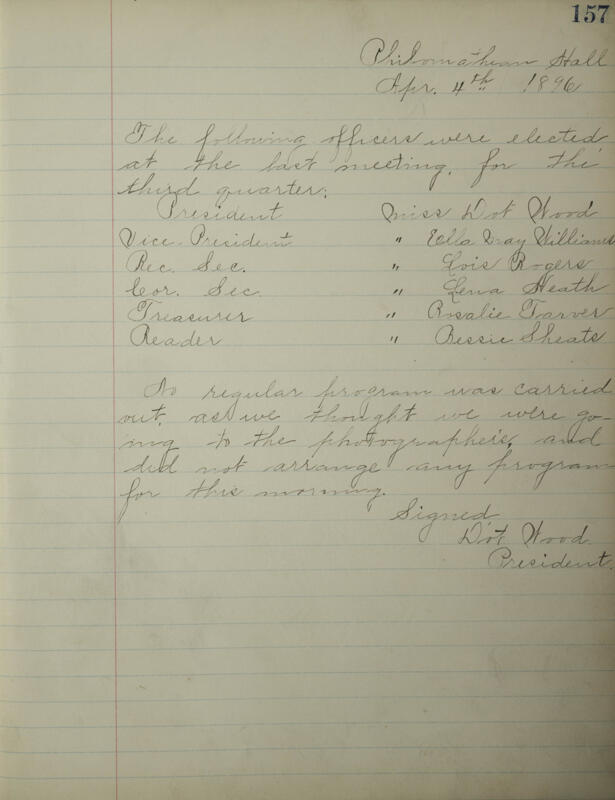 157
Philomathean Hall
Apr. 4th 1896
The following officers were elected
at the last meeting, for the
third quarter:
President Miss Dot Wood
Vice-President " Ella May Williams
Rec. Sec. " Lois Rogers
Cor. Sec. " Lena Heath
Treasurer " Rosalie Tarver
Reader " Bessie Sheats
No regular program was carried
out, as we thought we were go-
ing to the photographer's, and
did not arrange any program
for this morning.
Signed
Dot Wood
President.